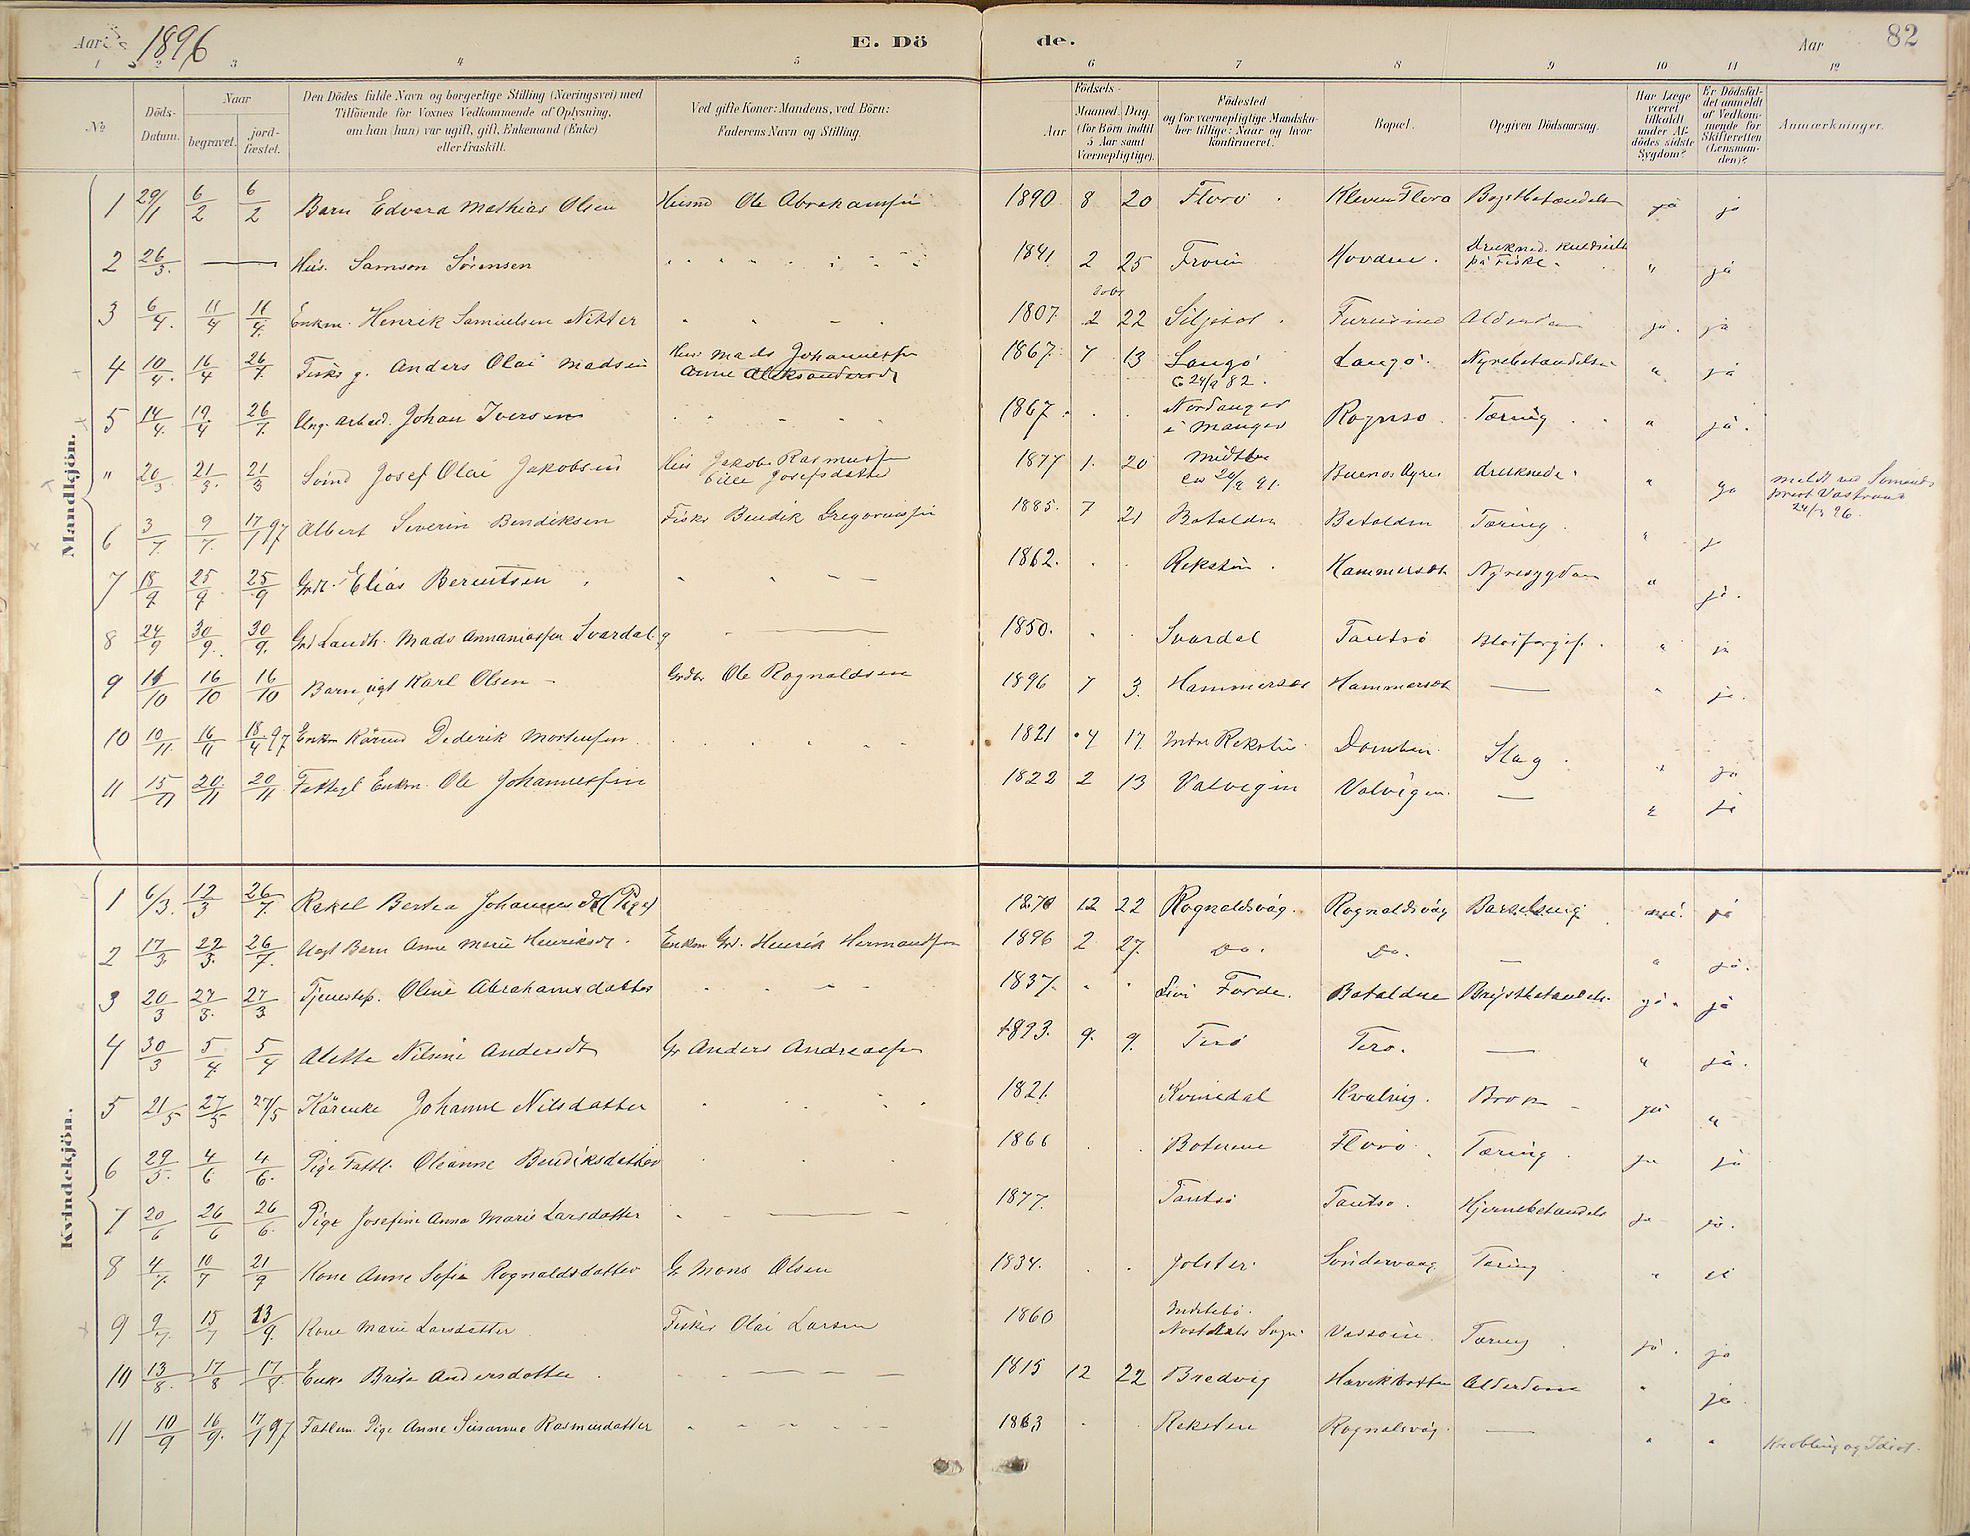 Aar 1896
E. Döde.
Aar
82
1 2 3 4 5 6 7 8 9 10 11 12
No
Döds-Datum.
Naar
begravet.
jord-fæstet.
Den Dödes fulde Navn og borgerlige Stilling (Næringsvei) med
Tilföiende for Voxnes Vedkommende af Oplysning,
om han (hun) var ugift, gift, Enkemand (Enke)
eller fraskilt.
Ved gifte Koner: Mandens, ved Börn:
Faderens Navn og Stilling.
Födsels-
Aar
Maaned. Dag.
(for Börn indtil
5 Aar samt
Værnepligtige).
Födested
og for værnepligtige Mandskaber tillige: Naar og hvor
konfirmeret.
Bopæl.
Opgiven Dödsaarsag.
Har Læge
været
tilkaldt
under Afdödes sidste
Sygdom?
Er Dödsfaldet anmeldt
af Vedkommende for
Skifteretten
(Lensmanden)?
Anmærkninger.
Mandkjön.
1 29/1 6/2 6/2 Barn Edvard Mathias Olsen Husmd Ole Abrahamsen 1890 8 20 Florö Kleven Florö Brystbetændelse ja ja
2 26/3. — Hus. Samson Sörensen 1841. 2 25 Hovden. druknede på Fiske. " ja
3 6/4. 11/4 11/4. Enkm. Henrik Samuelsen Nitter 1807 2 22 ja. ja
4 10/4. 16/4 26/7. Anders Olai Madsen Hus Mads Johannessen
Anne Aleksandersdr 1867. 7 13 Langö
C 24/9 82. Langö. Nyrebetændelse " ja
5 14/4. 19/4 26/7. Ung. arbeid. Johan Iversen 1867. Nordanger
i Manger Rognsö Tæring " ja.
" 20/3. 21/3. 21/3 Josef Olai Jakobsen Hus Jakob Rasmussen
Josefsdatter 1877 1. 20 Buenos Ayres druknede " ja meldt ved Sömands
prest
6 3/7. 9/7. 17/7 97 Albert Severin Bendiksen Fisker Bendik Gregoriussen 1885. 7 21 Batalden Batalden Tæring. "
7 18/9 25/9 25/9 Grdr. Elias Berentsen 1862. Reksten Hammerset Nyresygdom " ja.
8 24/9 30/9. 30/9. Mads Ananiassen Svardal g 1850. Svardal Tansö Blodforgif. " ja
9 14/10 16/10 16/10 Barn Karl Olsen Grdbr Ole Rognaldsen 1896 7 3. Hammerset Hammerset — " ja.
10 10/11. 16/11 18/4 97 Enkm Kårmd Dederik Mortensen 1821 4 17 Indre Reksten Domben Slag " ja
11 15/11 20/11 20/11 Enkm. Ole Johannessen 1822 2 13 Valvigen Valvigen. — ja
Kvindekjön.
1 6/3. 12/3 26/7. Rakel Bertea Johannesdtr (Pige) 1870 12 22 Rognaldsvåg. Rognaldsvåg Barselseng nei. ja
2 17/3. 22/3. 26/7. Barn Anne Marie Henriksdtr. Enkm Grd. Henrik Hermandsen 1896 2 27. Do. Do. — " ja.
3 20/3 27/3. 27/3 Tjenestep. Oline Abrahamsdatter 1837. Förde. Bataldne Brystbetændels. ja ja
4 30/3 5/4. 5/4 Alette Nilsine Andersdtr Gr Anders Andreassen 1893. 9. 9. Terö Terö. — " ja.
5 21/5 27/5 27/5 Kårenke Johanne Nilsdatter 1821. Kvinedal Kvalvig. Brok ja "
6 29/5. 4/6 4/6. Pige Fattl. Oleanne Bendiksdatter 1866 Botnene Florö. Tæring. ja ja
7 20/6 26/6 26/6. Pige Josefine Anna Marie Larsdatter 1877. Tansö Tansö. Hjernebetændels ja ja.
8 4/7. 10/7 21/9 Kone Anne Sofie Rognaldsdatter Gr Mons Olsen 1834. Jölster Söndervaag. Tæring "
9 9/7. 15/7 13/9. Kone Marie Larsdatter Fisker Olai Larsen 1860 Indrebö.
Nostdals Sogn Tæring ja. ja
10 13/8. 17/8 17/8. Enke Brita Andersdatter. 1815 12 22 Bredvig Alderdom " ja.
11 10/9 16/9. 17/7 97 Fatlem. Pige Anne Susanne Rasmusdatter 1863 Reksten Rognalsvåg. — " " Krobling og Idiot.